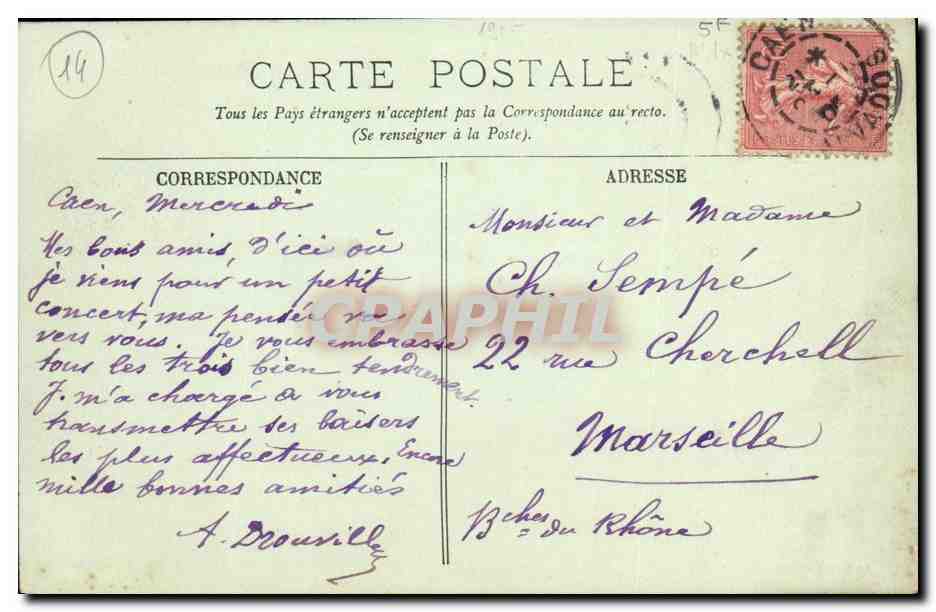 14
19
5F
CAEN
CALVADOS
CARTE POSTALE
Tous les Pays étrangers n'acceptent pas la Correspondance au recto.
(Se renseigner à la Poste).
CORRESPONDANCE
Caen, Mercredi
Mes bons amis, d'ici où
je viens pour un petit
concert, ma pensée va
vers vous. Je vous embrasse
tous les trois bien tendrement.
J. m'a chargé à vous
transmettre ses baisers
les plus affectueux. Encore
mille bonnes amitiés
A. Drouville
ADRESSE
Monsieur et Madame
Ch. Sempé
22 rue Cherchell
Marseille
Bches du Rhône
CPAPHIL